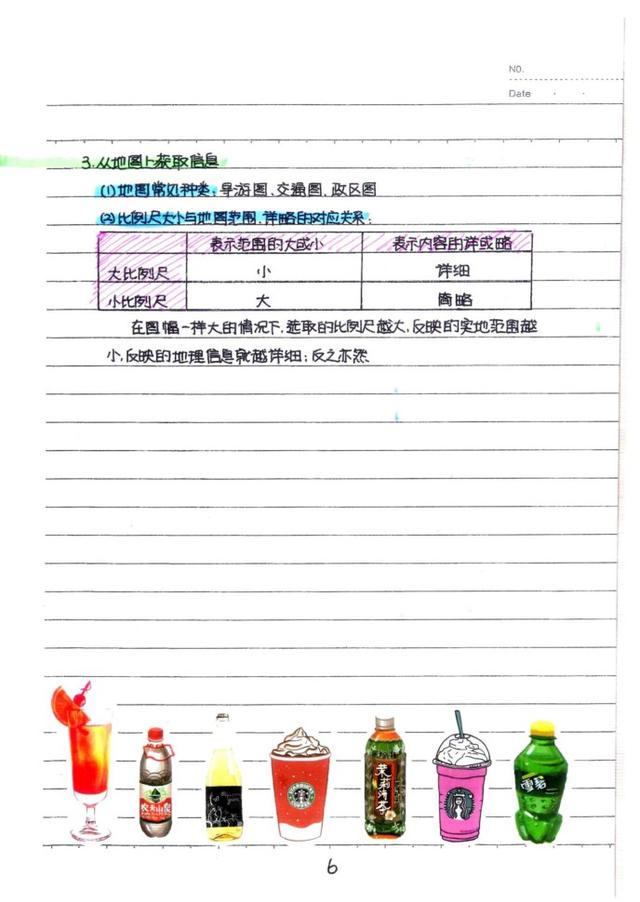 NO.
Date
3.从地图上获取信息
(1)地图常见种类:导游图、交通图、政区图
(2)比例尺大小与地图范围、详略的对应关系:
表示范围的大或小 表示内容的详或略
大比例尺 小 详细
小比例尺 大 简略
在图幅一样大的情况下,选取的比例尺越大,反映的实地范围越
小,反映的地理信息就越详细;反之亦然
农夫山泉
茉莉清茶
雪碧
6